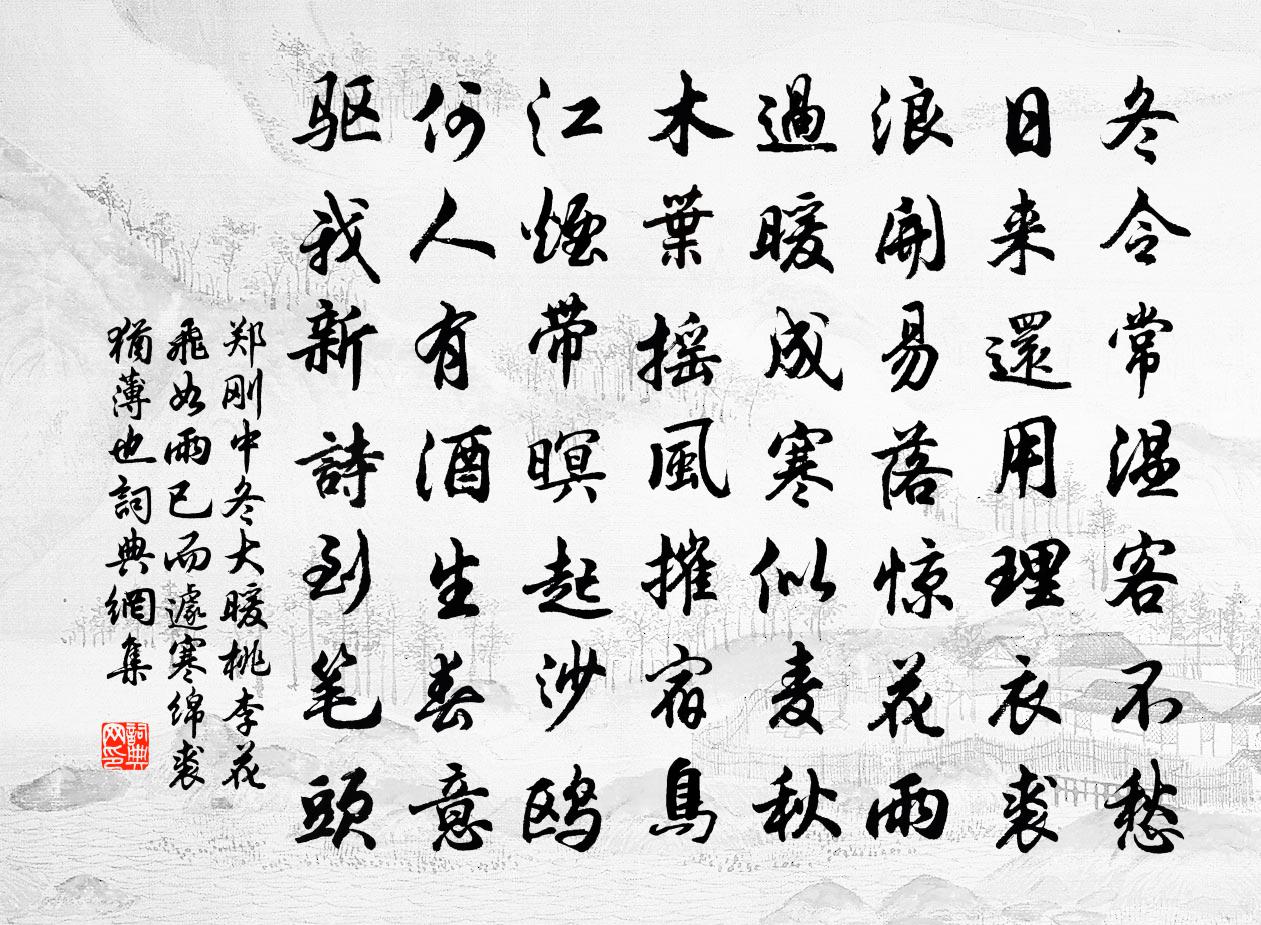 冬令常温客不愁
日来還用理衣裘
浪開易落惊花雨
過暖成寒似麦秋
木葉摇風摧宿鳥
江煙带暝起沙鸥
何人有酒生春意
驱我新詩到笔頭
郑刚中冬大暖桃李花
飛如雨已而遽寒绵裘
猶薄也詞典網集
詞典
网印